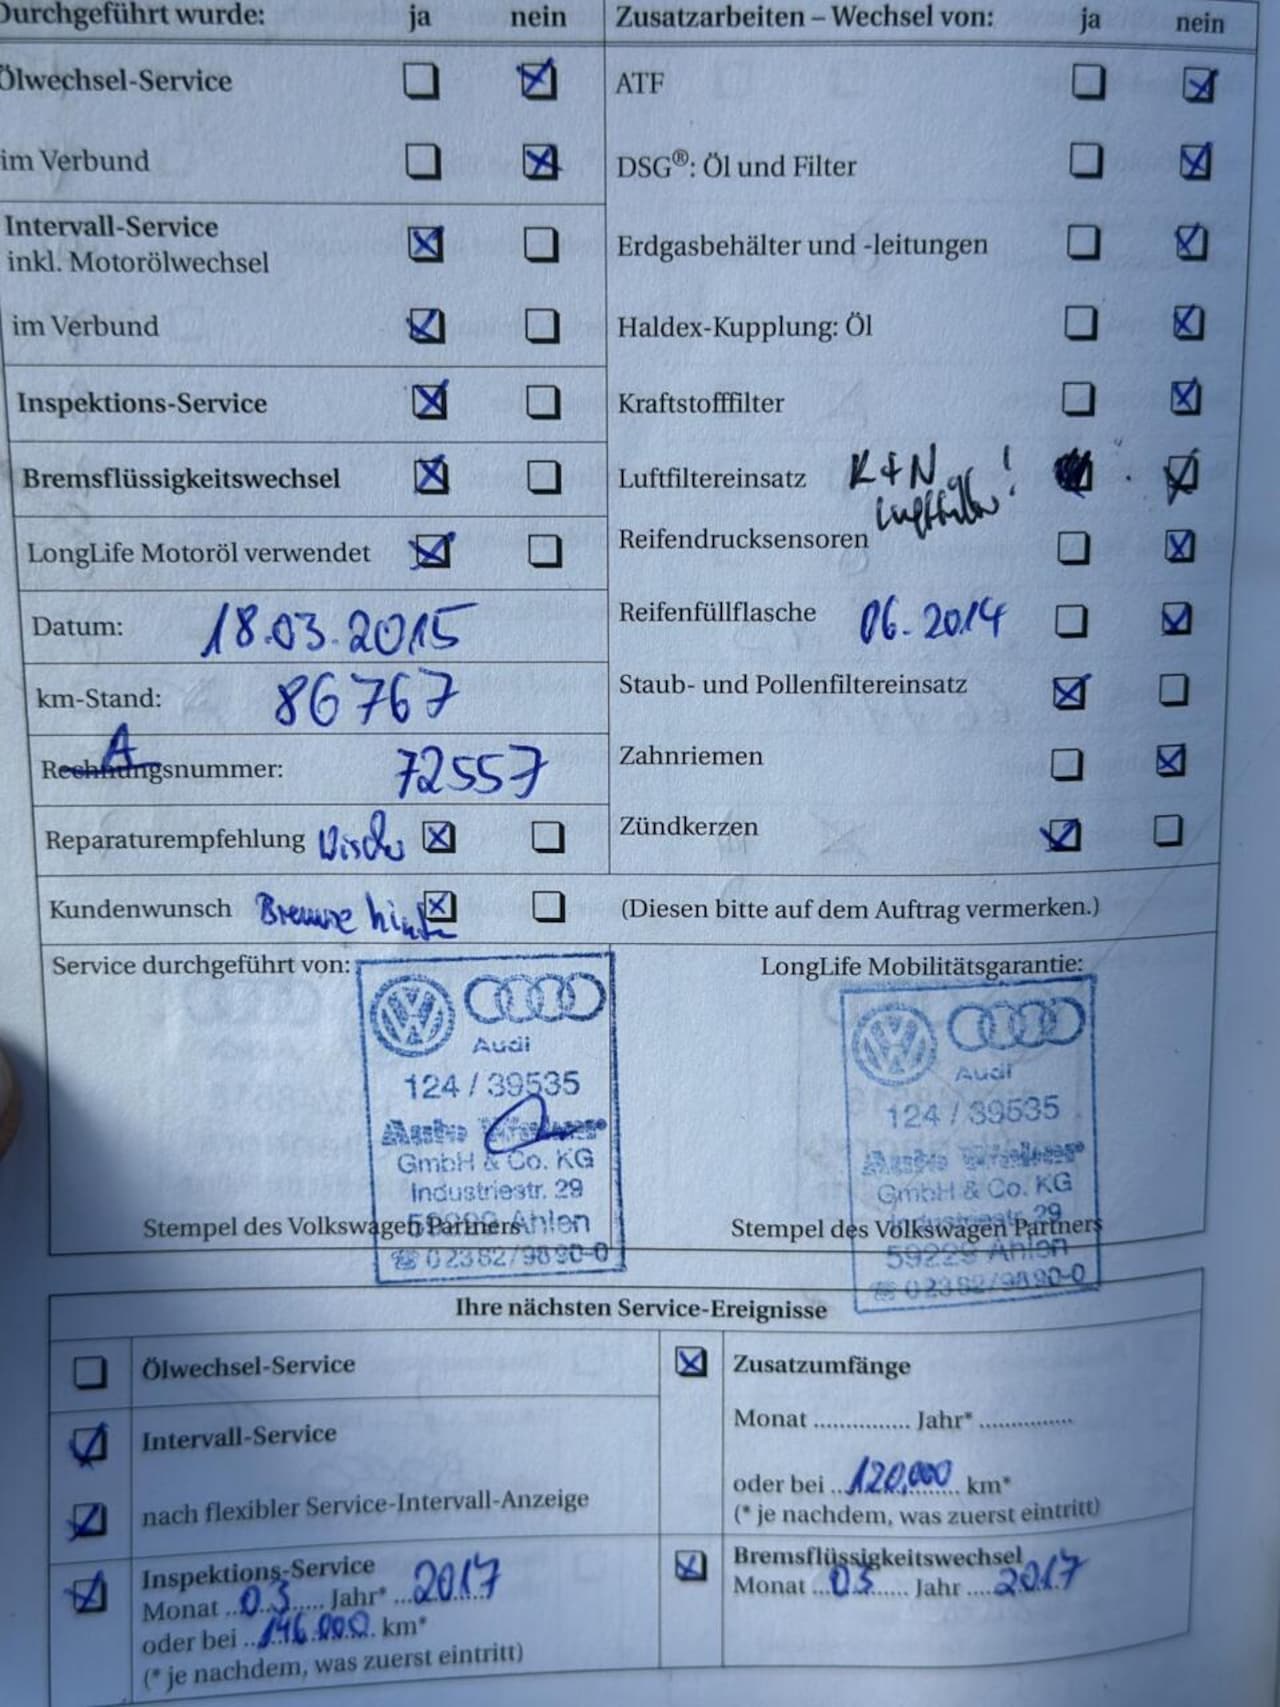 Durchgeführt wurde: ja nein
Ölwechsel-Service
im Verbund
Intervall-Service
inkl. Motorölwechsel
im Verbund
Inspektions-Service
Bremsflüssigkeitswechsel
LongLife Motoröl verwendet
Datum: 18.03.2015
km-Stand: 86767
A
Rechnungsnummer: 72557
Reparaturempfehlung
Kundenwunsch Bremse
Zusatzarbeiten – Wechsel von: ja nein
ATF
DSG®: Öl und Filter
Erdgasbehälter und -leitungen
Haldex-Kupplung: Öl
Kraftstofffilter
Luftfiltereinsatz K+N
Luftfilter!
Reifendrucksensoren
Reifenfüllflasche 06.2014
Staub- und Pollenfiltereinsatz
Zahnriemen
Zündkerzen
(Diesen bitte auf dem Auftrag vermerken.)
Service durchgeführt von:
Audi
124 / 39535
GmbH & Co. KG
Industriestr. 29
59229 Ahlen
☎ 02382/9890-0
Stempel des Volkswagen Partners
LongLife Mobilitätsgarantie:
Audi
124 / 39535
GmbH & Co. KG
Industriestr. 29
59229 Ahlen
☎ 02382/9890-0
Stempel des Volkswagen Partners
Ihre nächsten Service-Ereignisse
Ölwechsel-Service
Intervall-Service
nach flexibler Service-Intervall-Anzeige
Inspektions-Service
Monat ..03...... Jahr* ...2017
oder bei ..146.000. km*
(* je nachdem, was zuerst eintritt)
Zusatzumfänge
Monat ............... Jahr* ...............
oder bei ..120.000.. km*
(* je nachdem, was zuerst eintritt)
Bremsflüssigkeitswechsel
Monat ...03...... Jahr ....2017